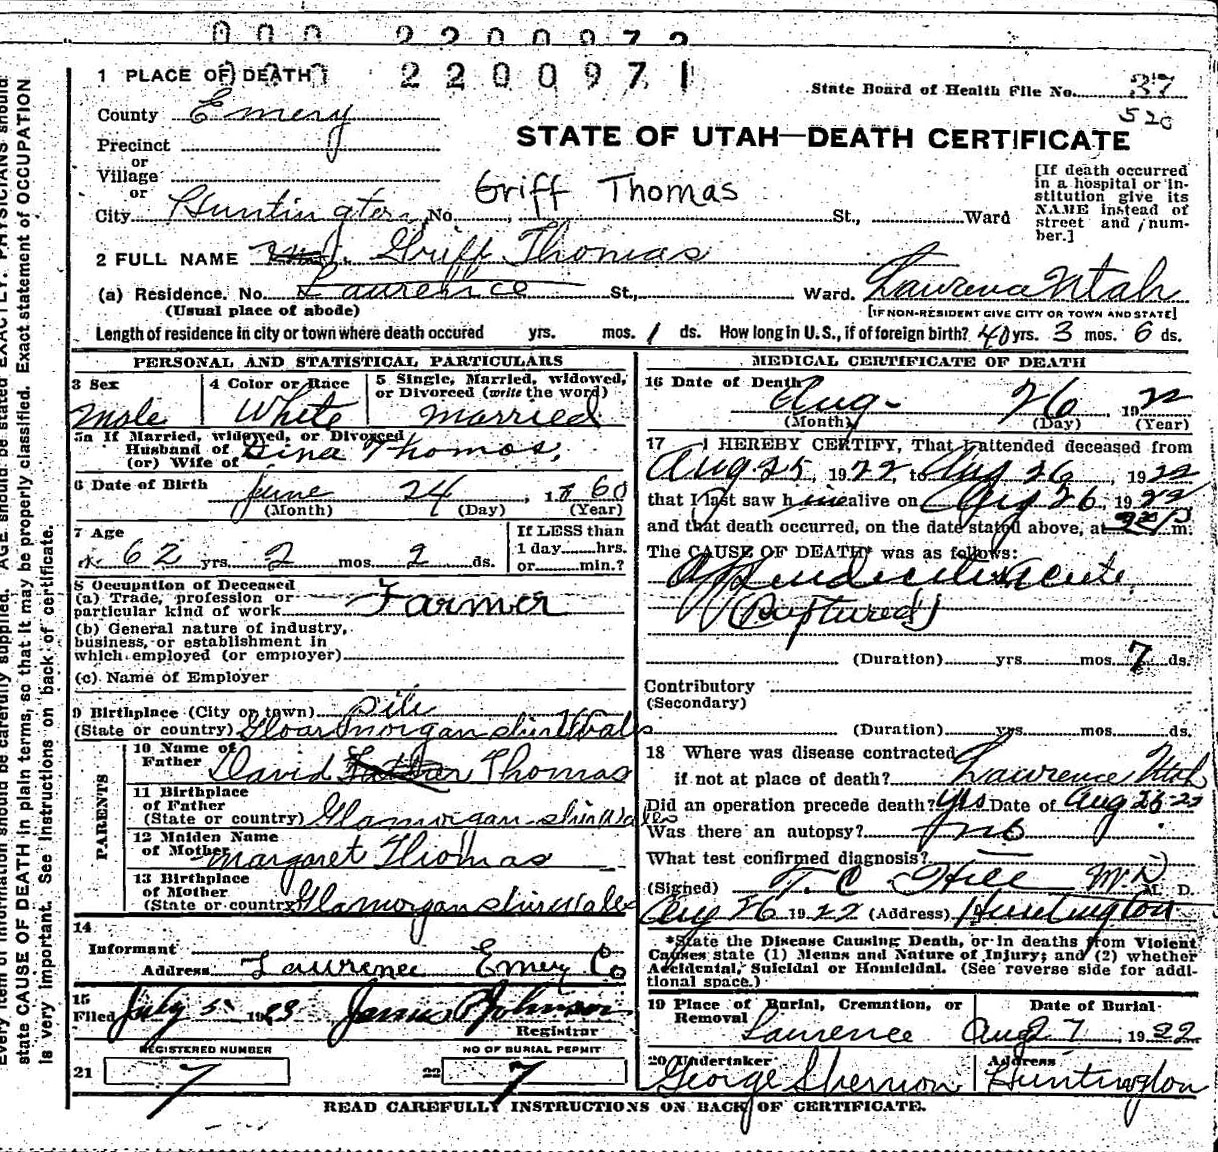 000 2200972
2200971
1 PLACE OF DEATH
State Board of Health File No. 37
520
County Emery
STATE OF UTAH—DEATH CERTIFICATE
Precinct
or
Village
or
City Huntington No. St., Ward
Griff Thomas
[If death occurred in a hospital or in-stitution give its NAME instead of street and num-ber.]
2 FULL NAME Griff Thomas
(a) Residence. No. Laurence St., Ward. Lawrence Utah
(Usual place of abode)
[IF NON-RESIDENT GIVE CITY OR TOWN AND STATE]
Length of residence in city or town where death occured yrs. mos. 1 ds. How long in U.S., if of foreign birth? 40 yrs. 3 mos. 6 ds.
PERSONAL AND STATISTICAL PARTICULARS
3 Sex
Male
4 Color or Race
White
5 Single, Married, widowed, or Divorced (write the word)
Married
5a If Married, widowed, or Divorced
Husband of
(or) Wife of
Thomas
6 Date of Birth June 24, 1860
(Month) (Day) (Year)
7 Age
62 yrs. 2 mos. 2 ds.
If LESS than
1 day hrs.
or min.?
8 Occupation of Deceased
(a) Trade, profession or
particular kind of work Farmer
(b) General nature of industry,
business, or establishment in
which employed (or employer)
(c) Name of Employer
9 Birthplace (City or town) Pile
(State or country) Gloarmorganshire Wales
PARENTS
10 Name of
Father David Thomas
11 Birthplace
of Father
(State or country) Glamorganshire Wales
12 Maiden Name
of Mother Margaret Thomas
13 Birthplace
of Mother
(State or country) Glamorganshire Wales
14
Informant
Address Lawrence Emery Co
15
Filed July 5 1923 James P Johnson
Registrar
REGISTERED NUMBER
NO OF BURIAL PERMIT
21 7
22 7
MEDICAL CERTIFICATE OF DEATH
16 Date of Death Aug- 26, 1922
(Month) (Day) (Year)
17 I HEREBY CERTIFY, That I attended deceased from
Aug 25, 1922, to Aug 26, 1922
that I last saw him alive on Aug 26, 1922
and that death occurred, on the date stated above, at m.
The CAUSE OF DEATH* was as follows:
Appendicitis acute
(Ruptured)
(Duration) yrs mos. 7 ds.
Contributory
(Secondary)
(Duration) yrs mos. ds.
18 Where was disease contracted
if not at place of death? Lawrence Utah
Did an operation precede death? yes Date of Aug 26 22
Was there an autopsy? no
What test confirmed diagnosis?
(Signed) T. C. Hill M.D. M. D.
Aug 26 1922 (Address) Huntington
*State the Disease Causing Death, or in deaths from Violent
Causes state (1) Means and Nature of Injury; and (2) whether
Accidental, Suicidal or Homicidal. (See reverse side for addi-
tional space.)
19 Place of Burial, Cremation, or
Removal
Laurence
Date of Burial
Aug 27 1922
20 Undertaker
George Sherman
Address
Huntington
READ CAREFULLY INSTRUCTIONS ON BACK OF CERTIFICATE.
Every item of information should be carefully supplied. AGE should be stated EXACTLY. PHYSICIANS should
state CAUSE OF DEATH in plain terms, so that it may be properly classified. Exact statement of OCCUPATION
is very important. See instructions on back of certificate.